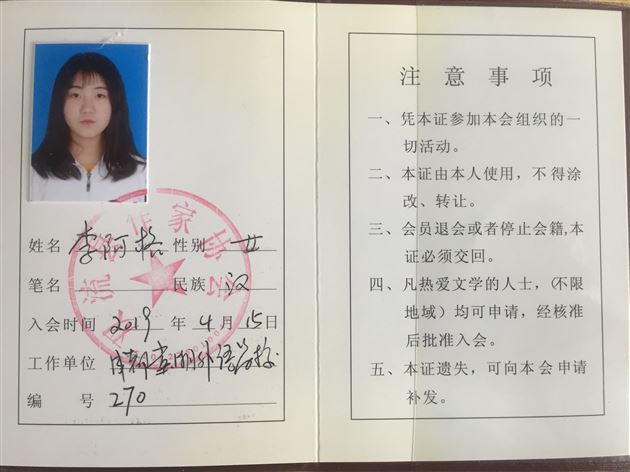 作家协会
姓名 李阿格 性别 女
笔名 民族 汉
入会时间 2019 年 4 月 15 日
工作单位 外语学校
编 号 270
注意事项
一、凭本证参加本会组织的一
切活动。
二、本证由本人使用，不得涂
改、转让。
三、会员退会或者停止会籍,本
证必须交回。
四、凡热爱文学的人士，(不限
地域）均可申请，经核准
后批准入会。
五、本证遗失，可向本会申请
补发。